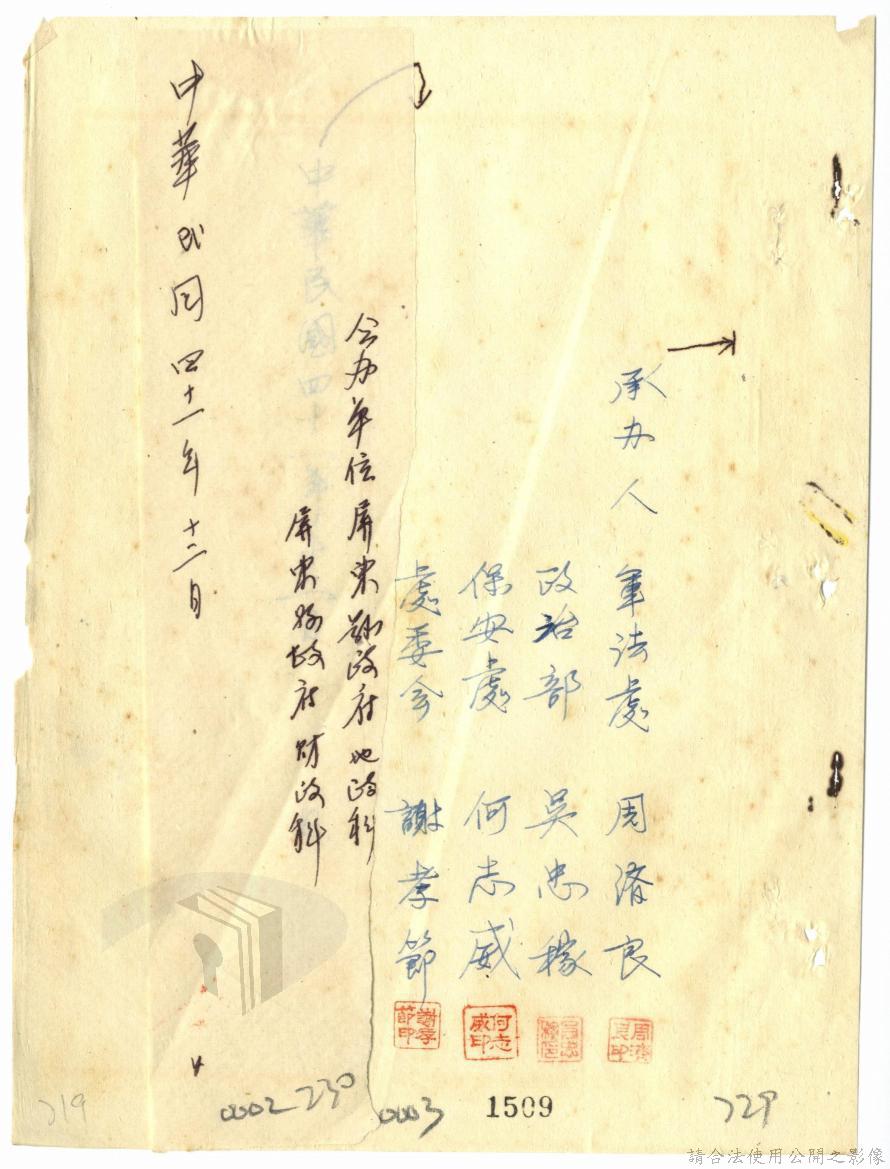 承办人 軍法處 周濟良
政治部 吳忠稼
保安處 何志威
處委会 謝孝節
会办单位 屏東縣政府地政科
屏東縣政府财政科
中華民国四十一年十二月
中華民國四十一年
周濟良印
何志威印
謝孝節印
719
0002 230
0003
1509
729
請合法使用公開之影像